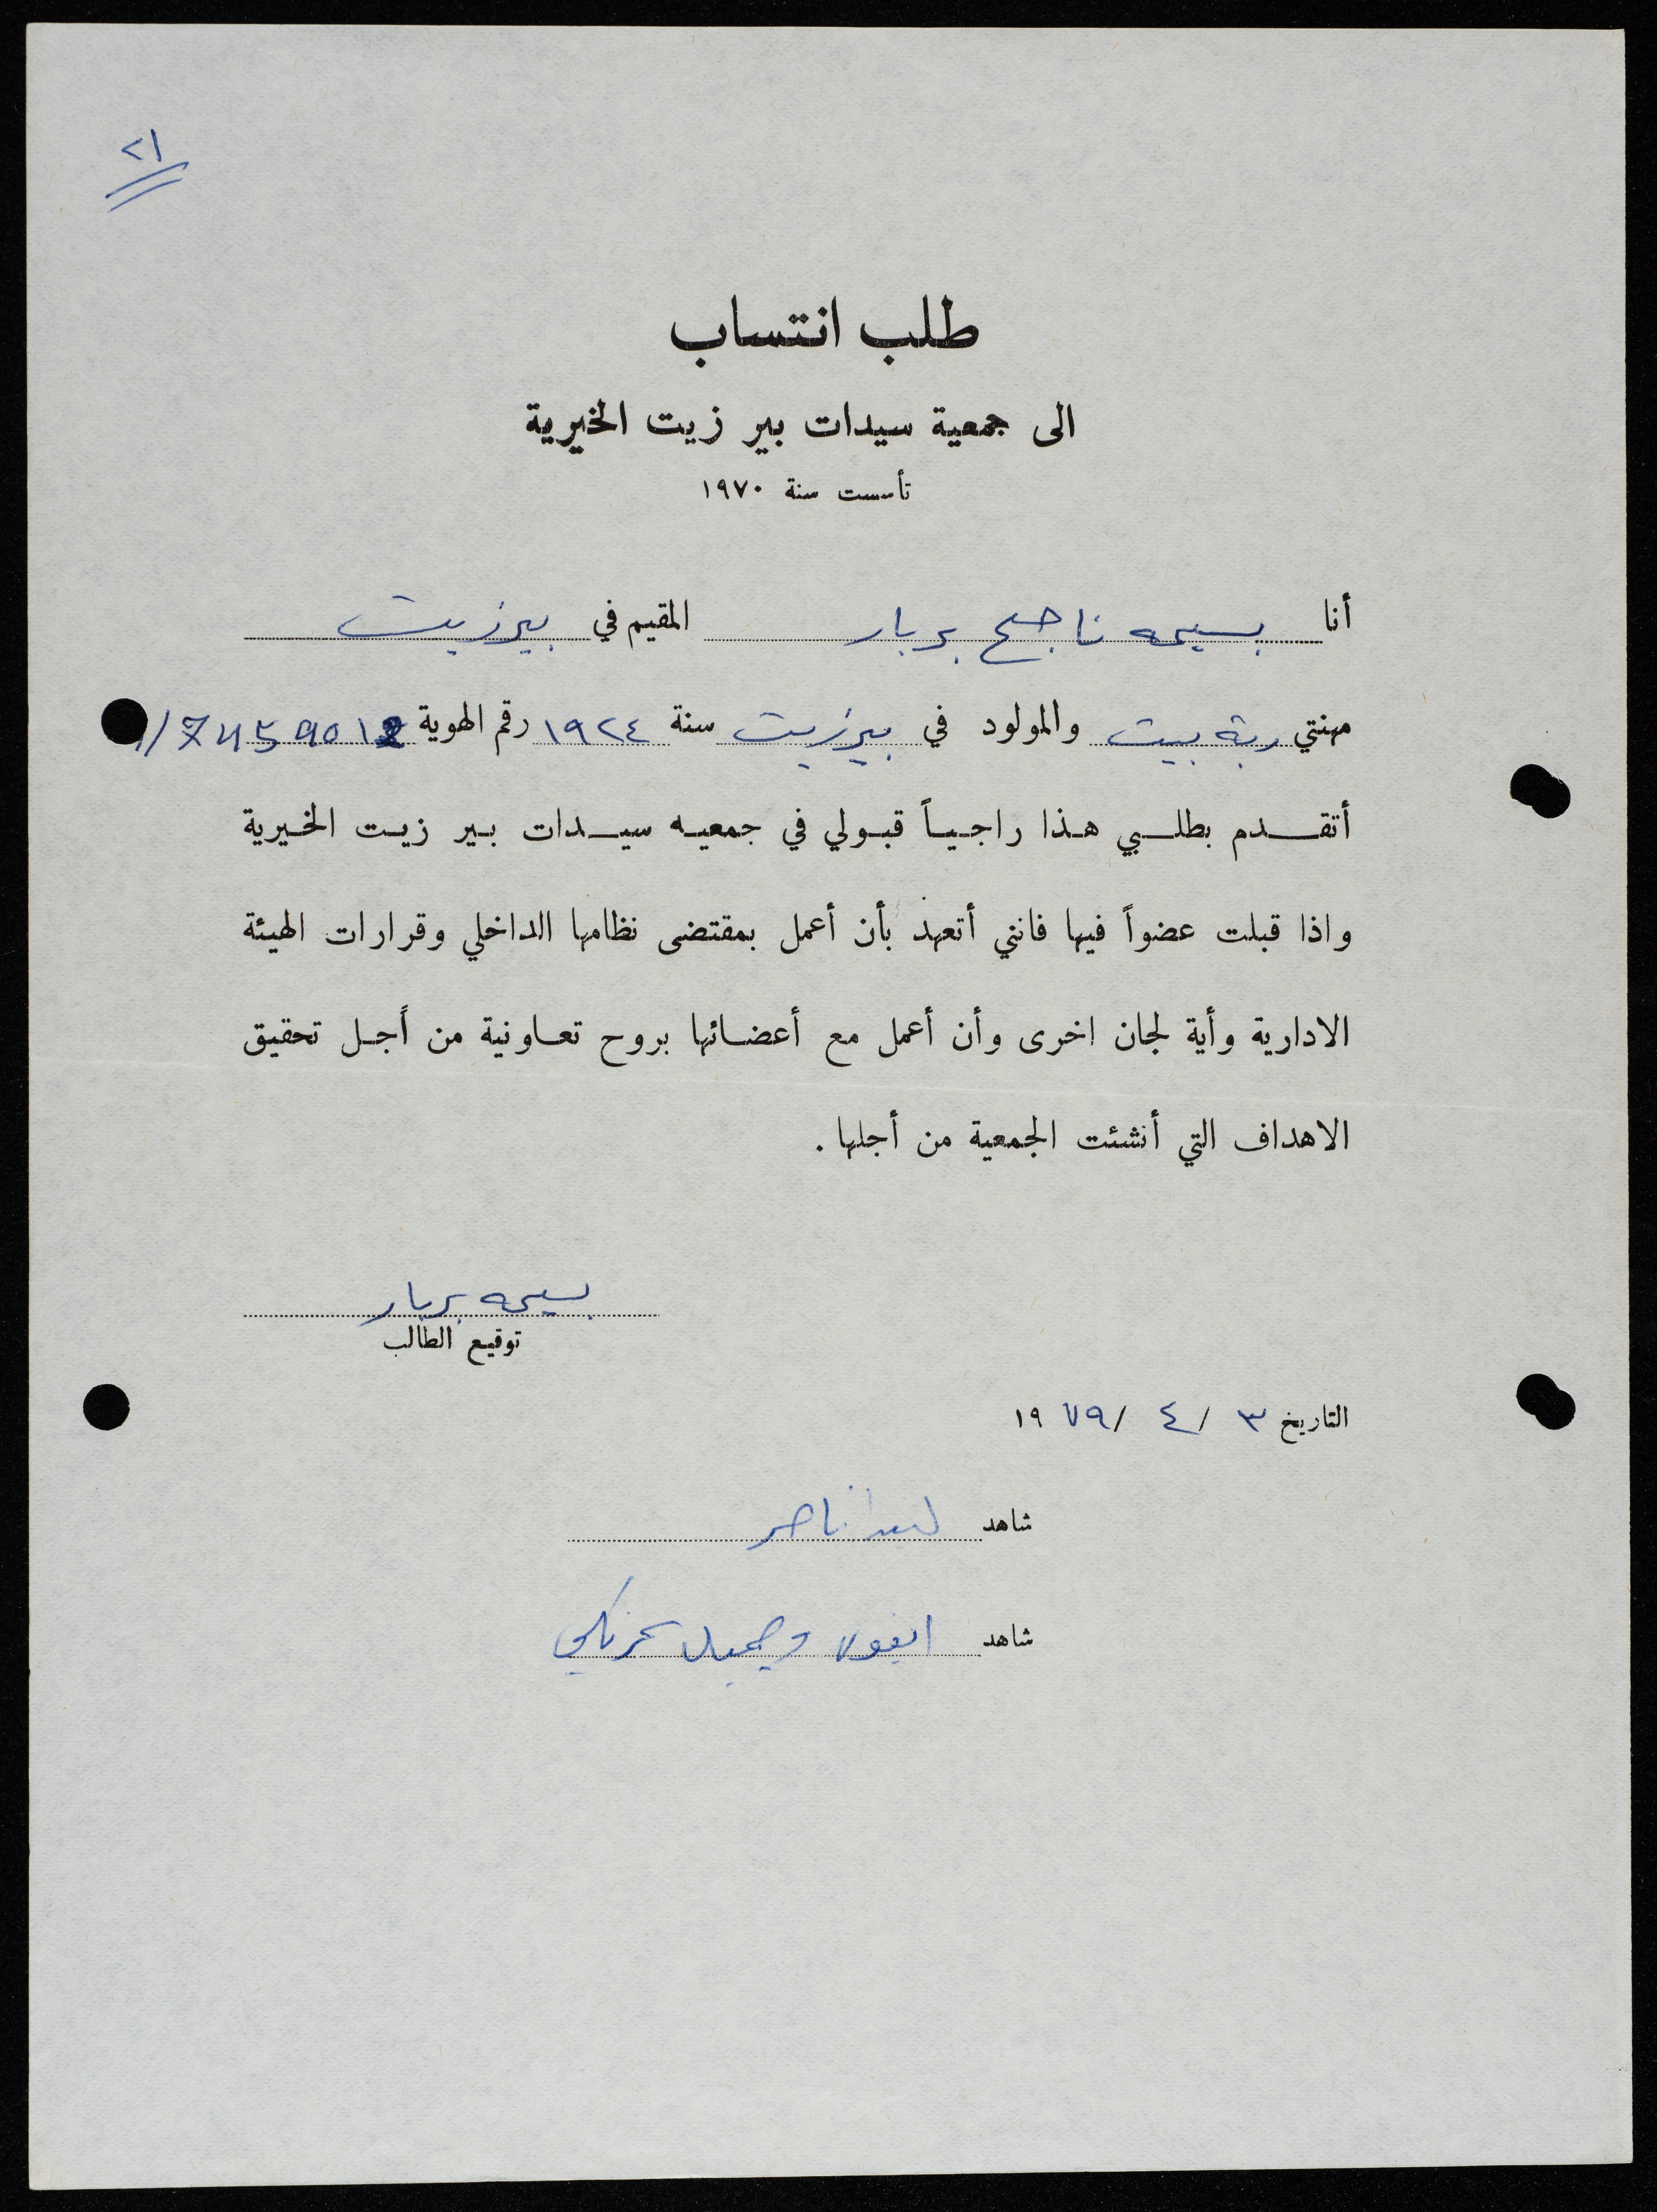 ٢١
طلب انتساب
الى جمعية سيدات بير زيت الخيرية
تأسست سنة ١٩٧٠
أنا بسيمه ناجح بربار المقيم في بيرزيت
مهنتي ربة بيت والمولود في بيرزيت سنة ١٩٢٤ رقم الهوية
أتقدم بطلبي هذا راجياً قبولي في جمعيه سيدات بير زيت الخيرية
واذا قبلت عضواً فيها فانني أتعهد بأن أعمل بمقتضى نظامها الداخلي وقرارات الهيئة
الادارية وأية لجان اخرى وأن أعمل مع أعضائها بروح تعاونية من أجل تحقيق
الاهداف التي أنشئت الجمعية من أجلها .
بسيمه بربار
توقيع الطالب
التاريخ ٣ / ٤ / ١٩٧٩
شاهد ناصر
شاهد